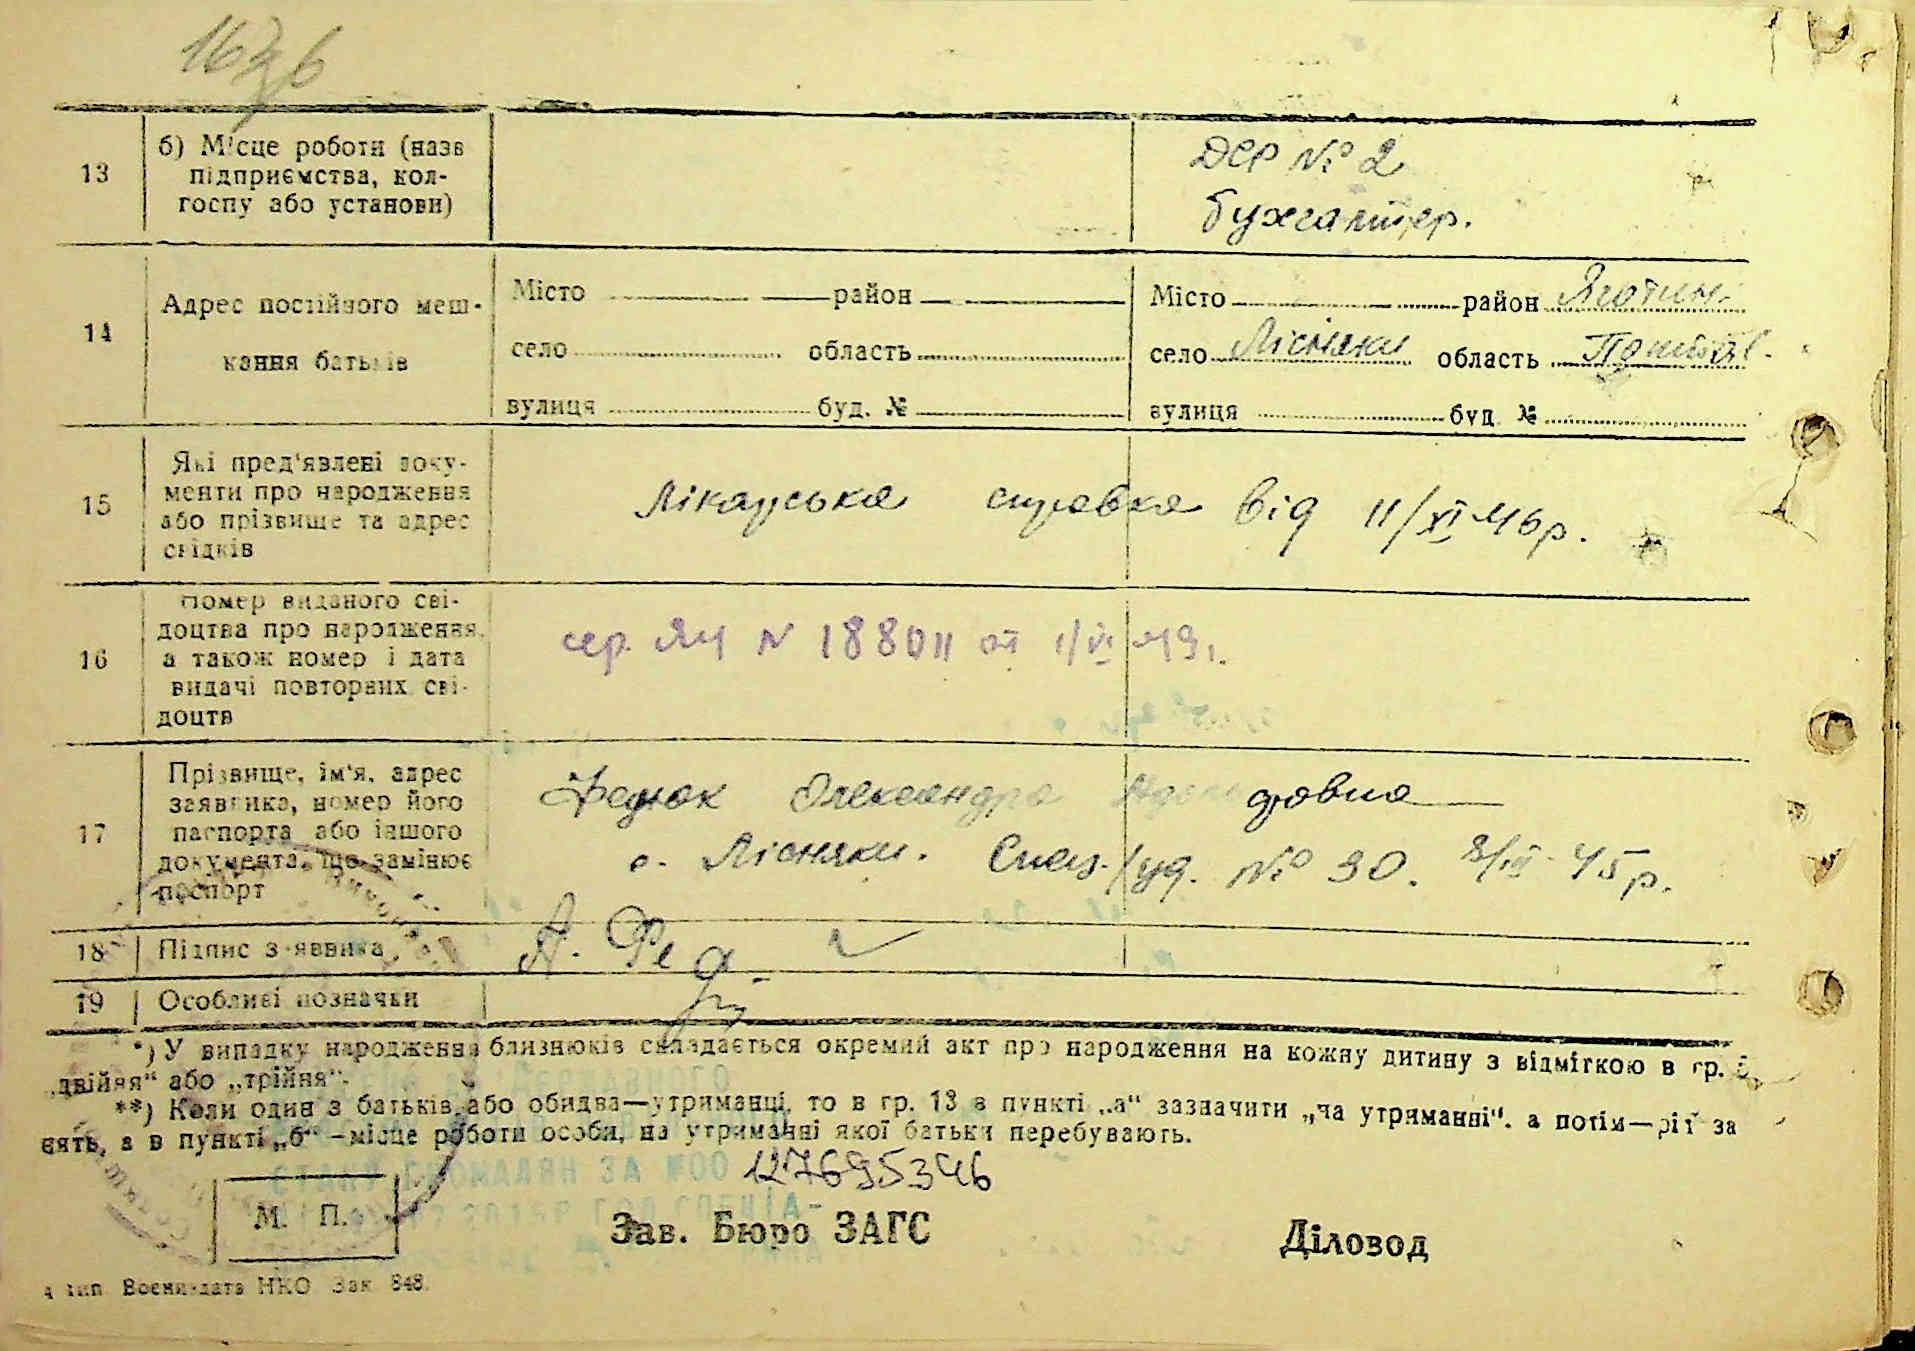 13
б) Місце роботи (назв
підприємства, кол-
госпу або установи)
ДСР № 2
бухгалтер.
14
Адрес постійного меш-
кання батьків
Місто район
село область
вулиця буд. №
Місто район Яготин.
село Лісняки область Полтав.
вулиця буд. №
15
Які пред'явлені доку-
менти про народження
або прізвище та адрес
свідків
Лікарська справка від 11/XI 46р.
16
Номер виданого сві-
доцтва про народження,
а також номер і дата
видачі повторних сві-
доцтв
сер. ЯЧ N 188011 от 1/VI 49г.
17
Прізвище, ім'я, адрес
заявника, номер його
паспорта або іншого
документа, що замінює
паспорт
Федюк Олександра
с. Лісняки. уд. № 30. 45р.
18 Підпис заявника
А. Фед
19 Особливі позначки
*) У випадку народження близнюків складається окремий акт про народження на кожну дитину з відміткою в гр. 5
„двійня“ або „трійня“.
**) Коли один з батьків або обидва—утриманці, то в гр. 13 в пункті „а“ зазначити „на утриманні“, а потім—рід за
нять, а в пункті „б“ –місце роботи особи, на утриманні якої батьки перебувають.
СТАНУ ГРОМАДЯН ЗА №00 127695346
М. П.
Зав. Бюро ЗАГС
Діловод
тип Воениздата НКО Зак 848.